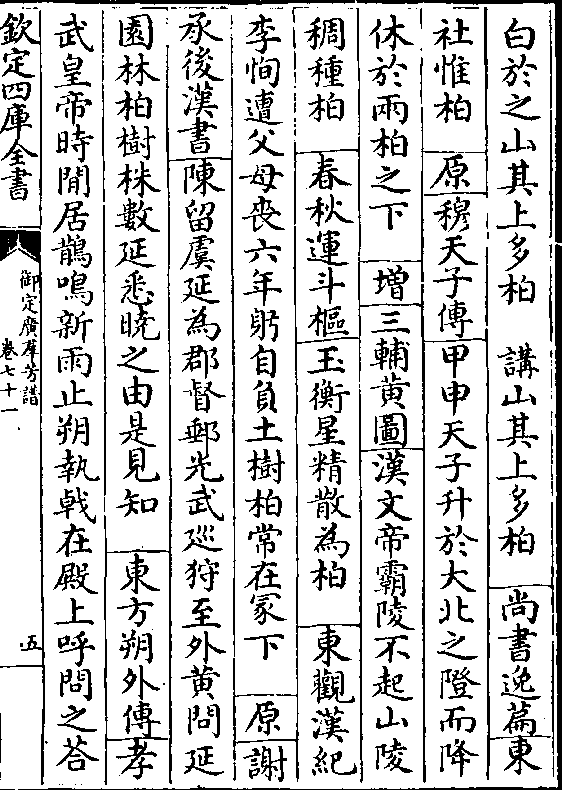 白於之山其上多柏　講山其上多柏　尚書逸篇東
社惟柏　原穆天子傳甲申天子升於大北之隥而降
休於兩柏之下　增三輔黃圖漢文帝霸陵不起山陵
稠種柏　春秋運斗樞玉衡星精散為柏　東觀漢紀
李恂遭父母喪六年躬自負土樹柏常在冢下　原謝
承後漢書陳留虞延為郡督郵光武巡狩至外黃問延
園林柏樹株數延悉曉之由是見知　東方朔外傳孝
武皇帝時閒居鵲鳴新雨止朔執戟在殿上呼問之荅
欽定四庫全書
御定廣羣芳譜
卷七十一
五